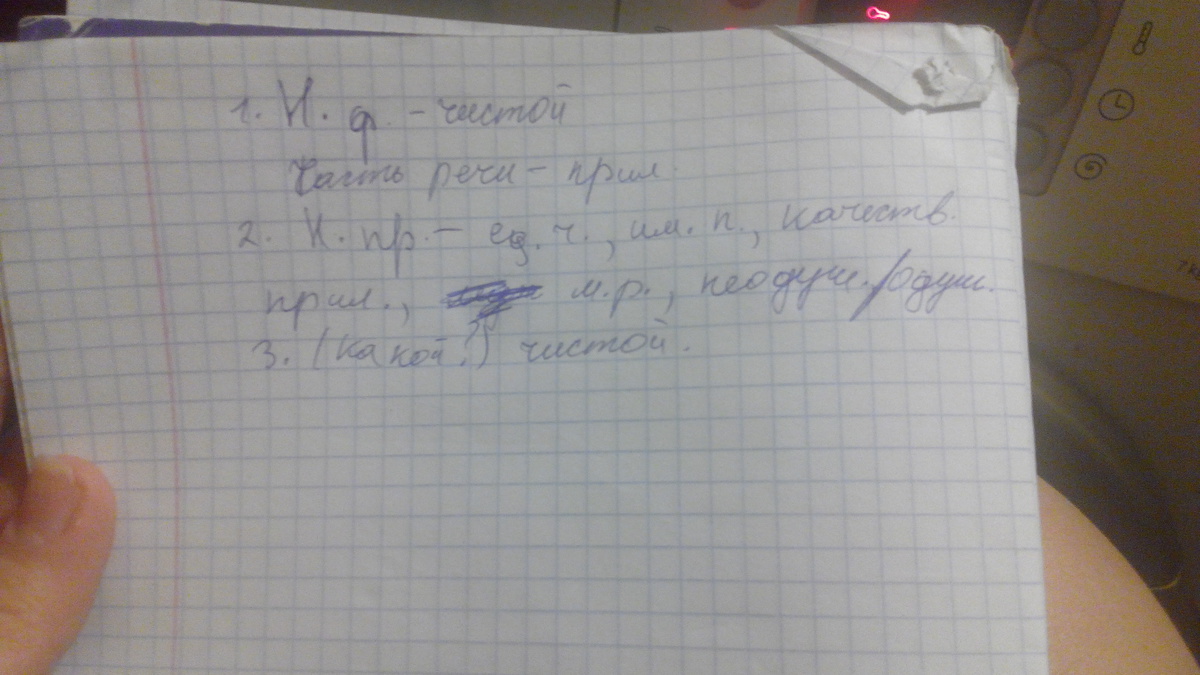 1. Н. ф. – чистой
Часть речи – прил.
2. Н. пр. – ед. ч., им. п., качеств.
прил., м.р., неодуш./одуш.
3. (какой?) чистой.